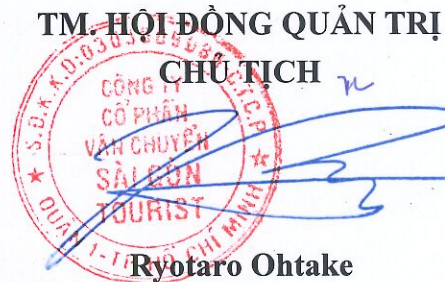 TM. HỘI ĐỒNG QUẢN TRỊ
CHỦ TỊCH
CÔNG TY
CỔ PHẦN
VẬN CHUYỂN
SÀI GÒN
TOURIST
QUẬN 1 - TP HỒ CHÍ MINH
Ryotaro Ohtake